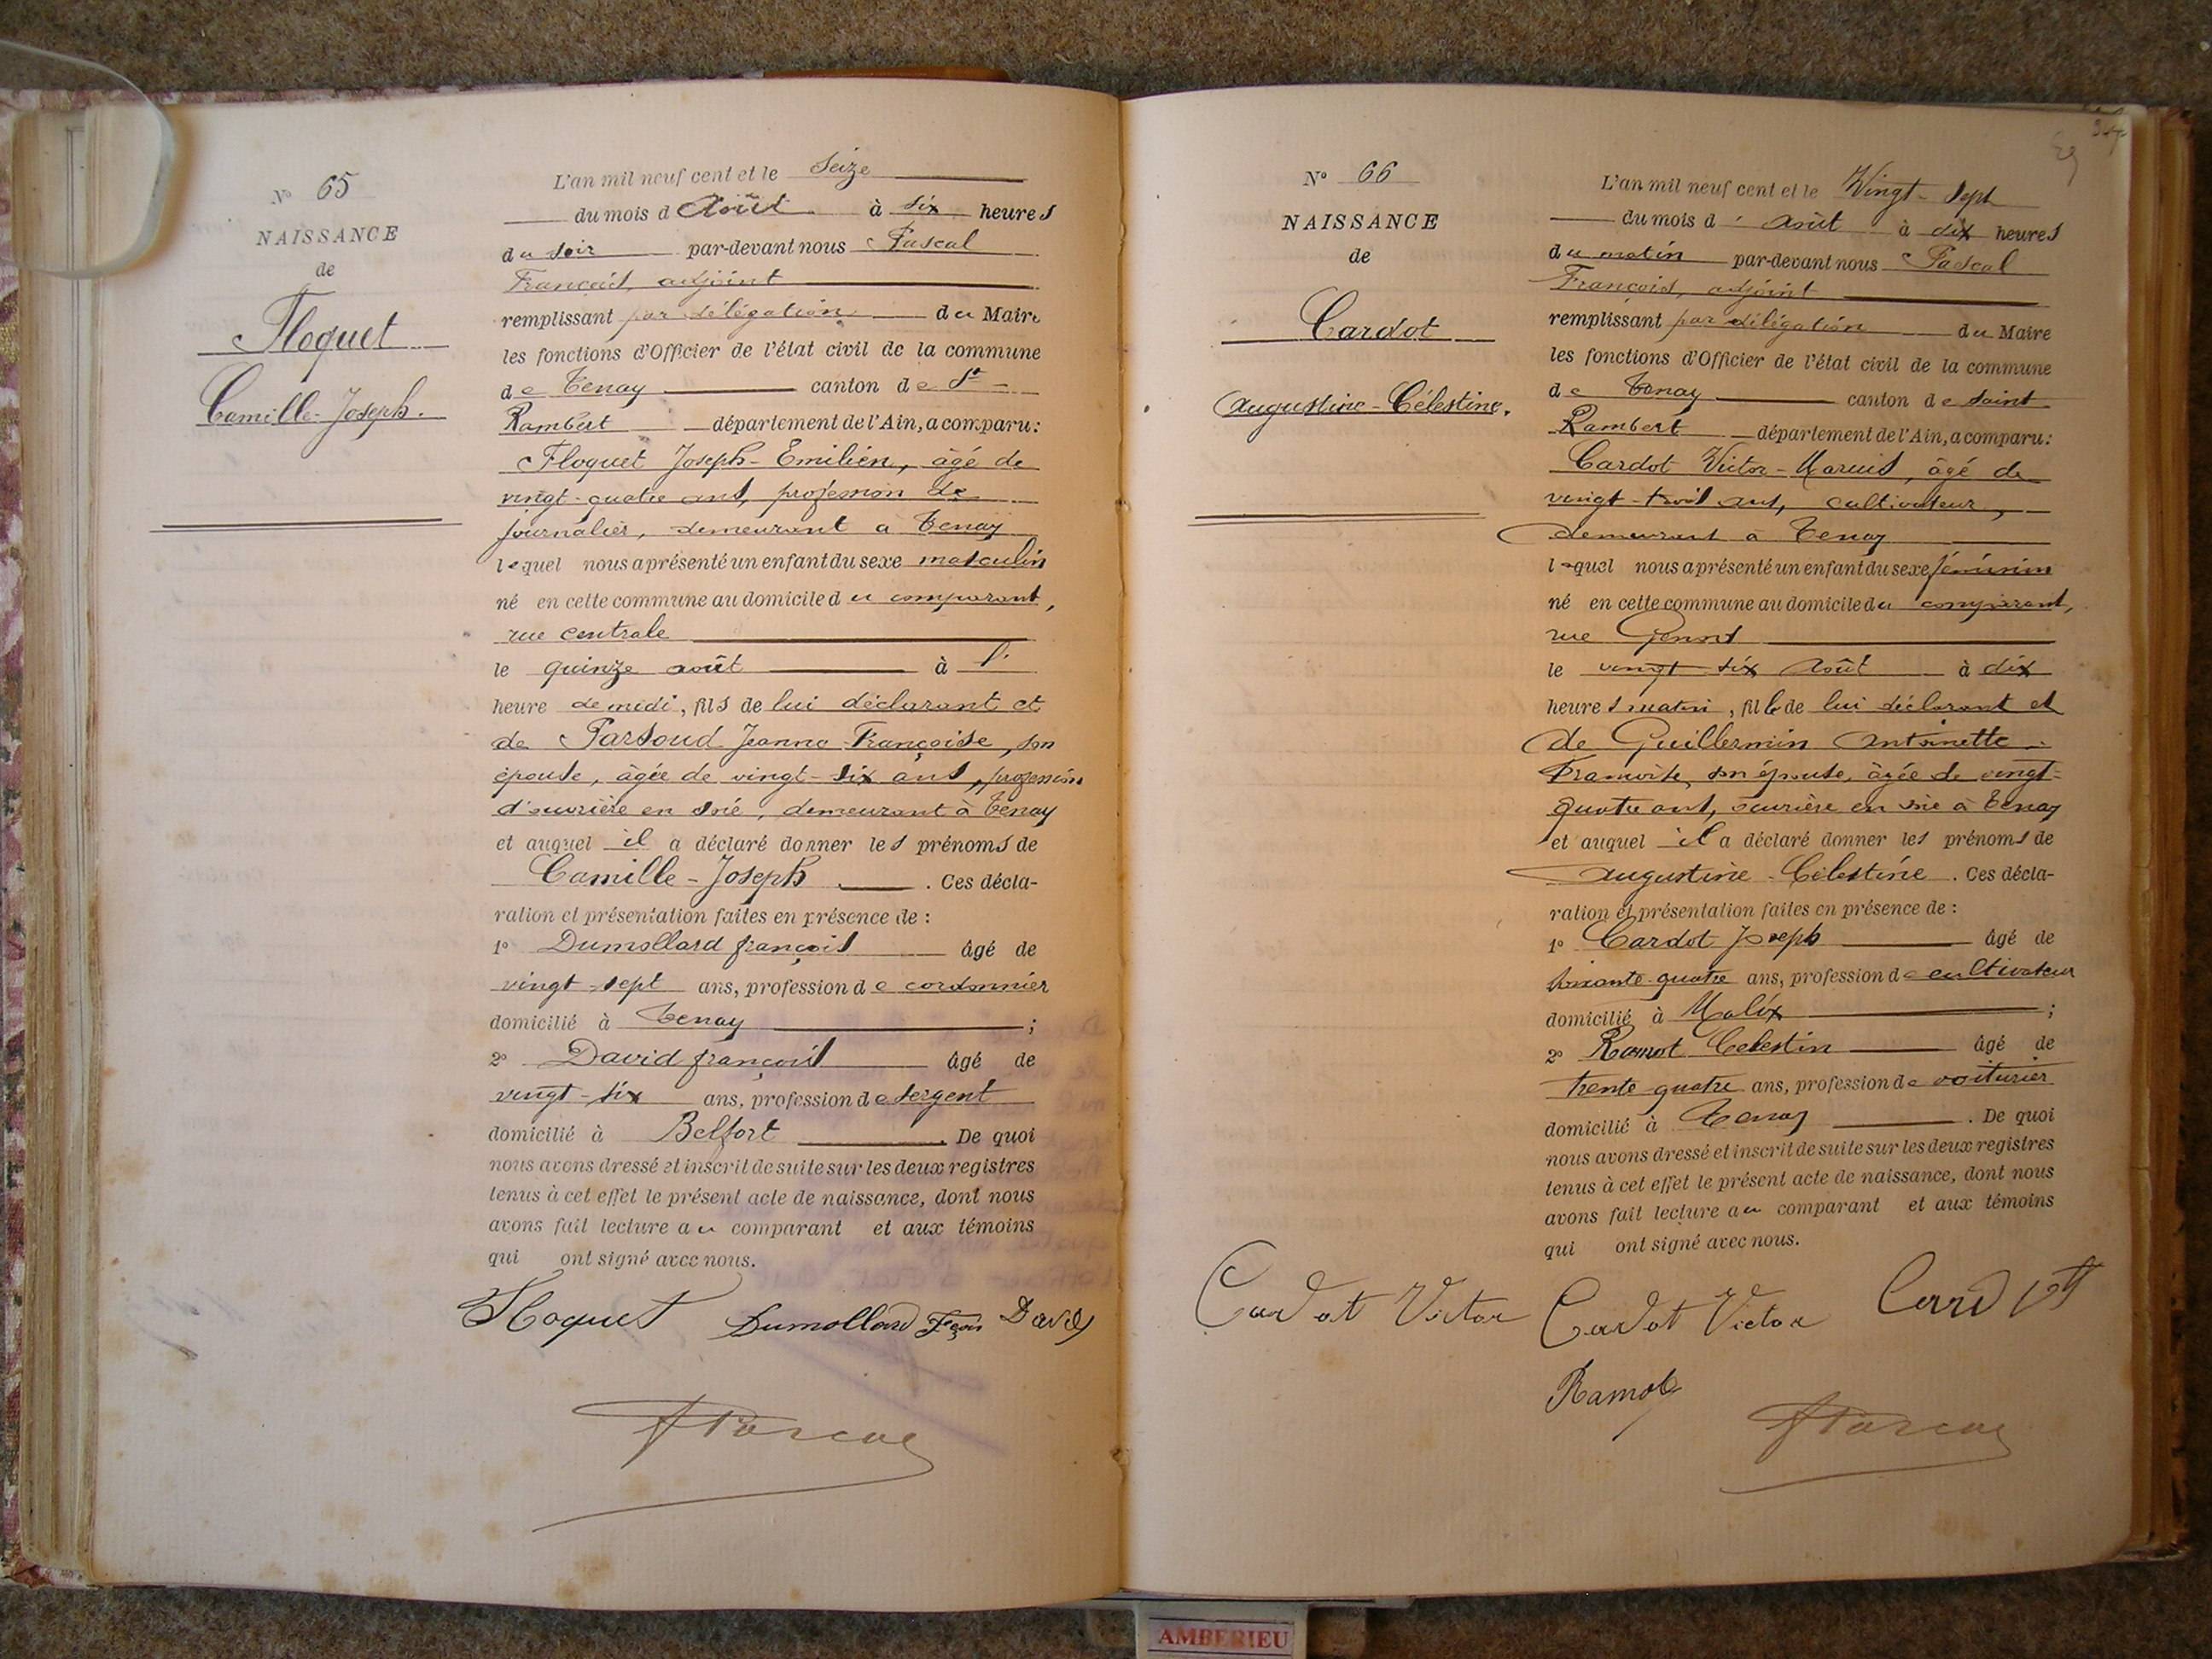 N° 65
NAISSANCE
de
Floquet
Camille-Joseph.
L'an mil neuf cent et le Seize
du mois d Août à six heures
du soir par-devant nous Pascal
François, adjoint
remplissant par délégation du Maire
les fonctions d'Officier de l'état civil de la commune
de Tenay canton de St
Rambert département de l'Ain, a comparu:
Floquet Joseph-Emilien, âgé de
vingt-quatre ans, profession de
journalier, demeurant a Tenay
lequel nous a présenté un enfant du sexe masculin
né en cette commune au domicile du comparant,
rue centrale
le quinze août à
heure de midi, fils de lui déclarant et
de Parsoud Jeanne Françoise, son
épouse, âgée de vingt-six ans, profession
d'ouvrière en soie, demeurant à Tenay
et auquel il a déclaré donner les prénoms de
Camille-Joseph. Ces décla-
ration et présentation faites en présence de :
1° Dumollard françois âgé de
vingt-sept ans, profession de cordonnier
domicilié à Tenay ;
2° David françois âgé de
vingt-six ans, profession de sergent
domicilié à Belfort. De quoi
nous avons dressé et inscrit de suite sur les deux registres
tenus à cet effet le présent acte de naissance, dont nous
avons fait lecture au comparant et aux témoins
qui ont signé avec nous.
Floquet Dumollard Fçois David
FPascal
N° 66
NAISSANCE
de
Cardot
Augustine-Célestine.
L'an mil neuf cent et le Vingt-sept
du mois d'août à dix heures
du matin par-devant nous Pascal
François, adjoint
remplissant par délégation du Maire
les fonctions d'Officier de l'état civil de la commune
de Tenay canton de saint
Rambert département de l'Ain, a comparu:
Cardot Victor-Marius, âgé de
vingt-trois ans, cultivateur,
demeurant à Tenay
lequel nous a présenté un enfant du sexe féminin
né en cette commune au domicile du comparant,
rue
le vingt six Août à dix
heures matin, fille de lui déclarant et
de Guillermin Antoinette
Françoise, son épouse, âgée de vingt-
quatre ans, ouvrière en soie à Tenay
et auquel il a déclaré donner les prénoms de
Augustine-Célestine. Ces décla-
ration et présentation faites en présence de :
1° Cardot Joseph âgé de
soixante-quatre ans, profession de cultivateur
domicilié à Malix ;
2° Ramot Celestin âgé de
trente-quatre ans, profession de voiturier
domicilié à Tenay. De quoi
nous avons dressé et inscrit de suite sur les deux registres
tenus à cet effet le présent acte de naissance, dont nous
avons fait lecture au comparant et aux témoins
qui ont signé avec nous.
Cardot Victor Cardot Victor Cardot
Ramot
FPascal
AMBERIEU